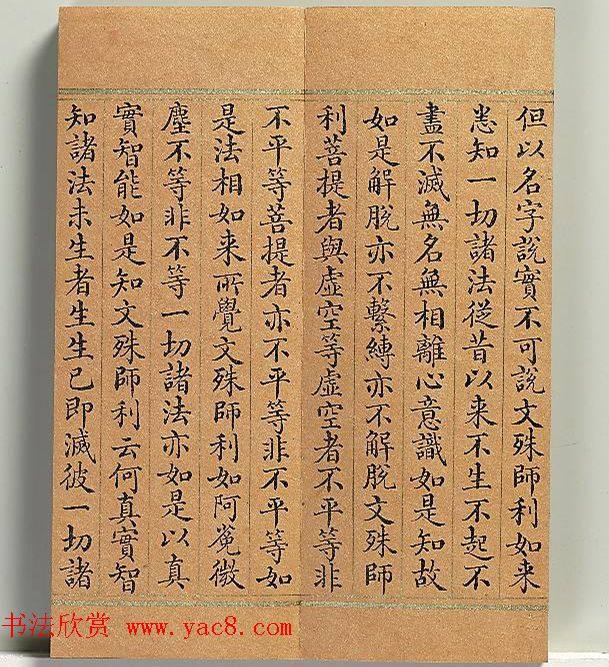 但以名字說實不可說文殊師利如来
悉知一切諸法從昔以来不生不起不
盡不滅無名無相離心意識如是知故
如是解脫亦不繫縛亦不解脫文殊師
利菩提者與虛空等虛空者不平等非
不平等菩提者亦不平等非不平等如
是法相如来所覺文殊師利如阿㝹微
塵不等非不等一切諸法亦如是以真
實智能如是知文殊師利云何真實智
知諸法未生者生生已即滅彼一切諸
书法欣赏 www.yac8.com